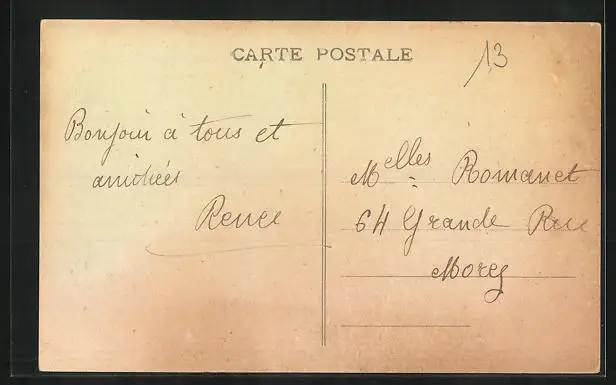 CARTE POSTALE
13
Bonjour à tous et
amitiés
Renée
Melles Romanet
64 Grande Rue
Morez